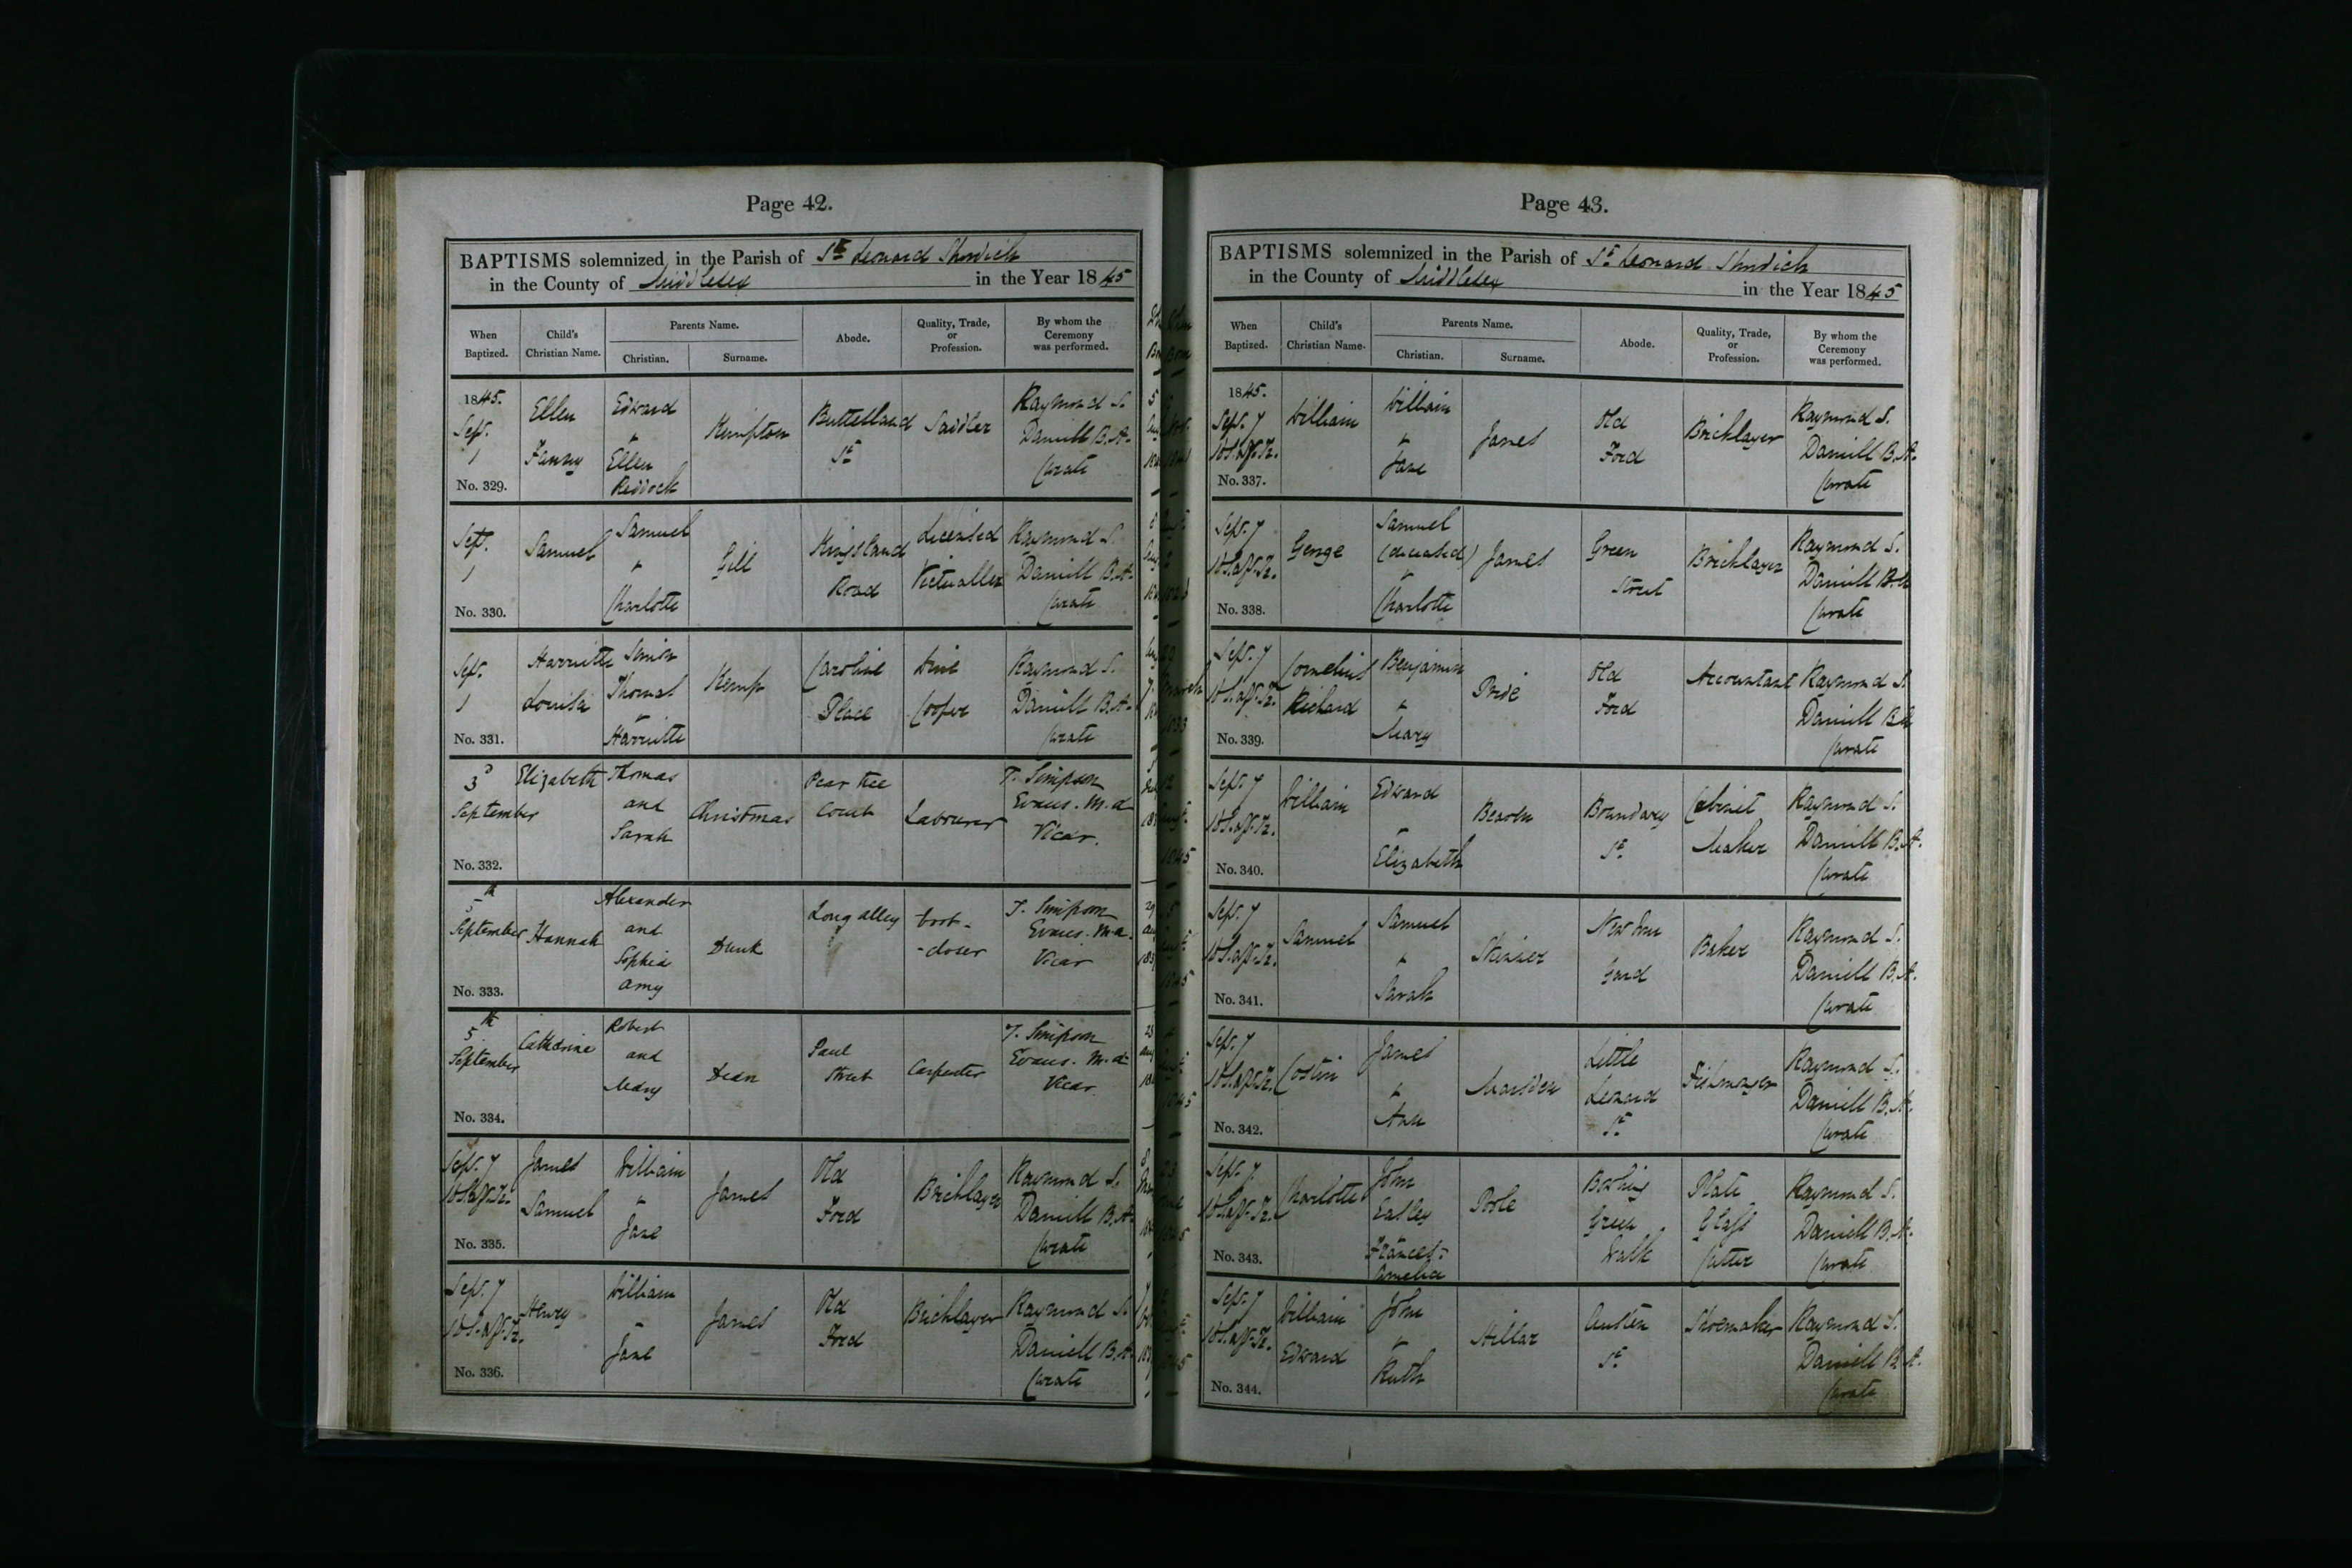 Page 42.
BAPTISMS solemnized in the Parish of St. Leonard Shordich
in the County of Middlesex in the Year 1845
When Baptized. Child's Christian Name. Parents Name. Christian. Surname. Abode. Quality, Trade, or Profession. By whom the Ceremony was performed.
1845. Sept. 1 No. 329. Ellen Fanny Edward & Ellen Reddock Kempton Buttesland St. Saddler Raymond S. Daniell B.A. Curate
Sept. 1 No. 330. Samuel Samuel & Charlotte Gill Kingsland Road Licensed Victualler Raymond S. Daniell B.A. Curate
Sept. 1 No. 331. Harriette Louisa Simon Thomas & Harriette Kemp Caroline Place Wine Cooper Raymond S. Daniell B.A. Curate
3d September No. 332. Elizabeth Thomas and Sarah Christmas Pear tree Court Labourer T. Simpson Evans. M.A Vicar.
5th September No. 333. Hannah Alexander and Sophia Amy Dunk Long alley boot-closer T. Simpson Evans. M.A. Vicar
5th September No. 334. Catherine Robert and Mary Dean Paul Street Carpenter T. Simpson Evans. M.A Vicar.
Sept. 7 No. 335. James Samuel William & Jane James Old Ford Bricklayer Raymond S. Daniell B.A. Curate
Sept. 7 No. 336. Henry William & Jane James Old Ford Bricklayer Raymond S. Daniell B.A. Curate
Page 43.
BAPTISMS solemnized in the Parish of St. Leonard Shordich
in the County of Middlesex in the Year 1845
When Baptized. Child's Christian Name. Parents Name. Christian. Surname. Abode. Quality, Trade, or Profession. By whom the Ceremony was performed.
1845. Sept. 7 No. 337. William William & Jane James Old Ford Bricklayer Raymond S. Daniell B.A. Curate
Sept. 7 No. 338. George Samuel (deceased) & Charlotte James Green Street Bricklayer Raymond S. Daniell B.A Curate
Sept. 7 No. 339. Cornelius Richard Benjamin & Mary Pride Old Ford Accountant Raymond S. Daniell B.A Curate
Sept. 7 No. 340. William Edward & Elizabeth Boundary St. Cabinet Maker Raymond S. Daniell B.A. Curate
Sept. 7 No. 341. Samuel Samuel & Sarah Skinner New Inn Yard Baker Raymond S. Daniell B.A. Curate
Sept. 7 No. 342. James & Ann Marsden Little Leonard St. Fishmonger Raymond S. Daniell B.A. Curate
Sept. 7 No. 343. Charlotte John Easley Frances Amelia Poole Bowling Green Walk Plate Glass Cutter Raymond S. Daniell B.A. Curate
Sept. 7 No. 344. William Edward John & Ruth Hillar Austen St. Shoemaker Raymond S. Daniell B.A. Curate